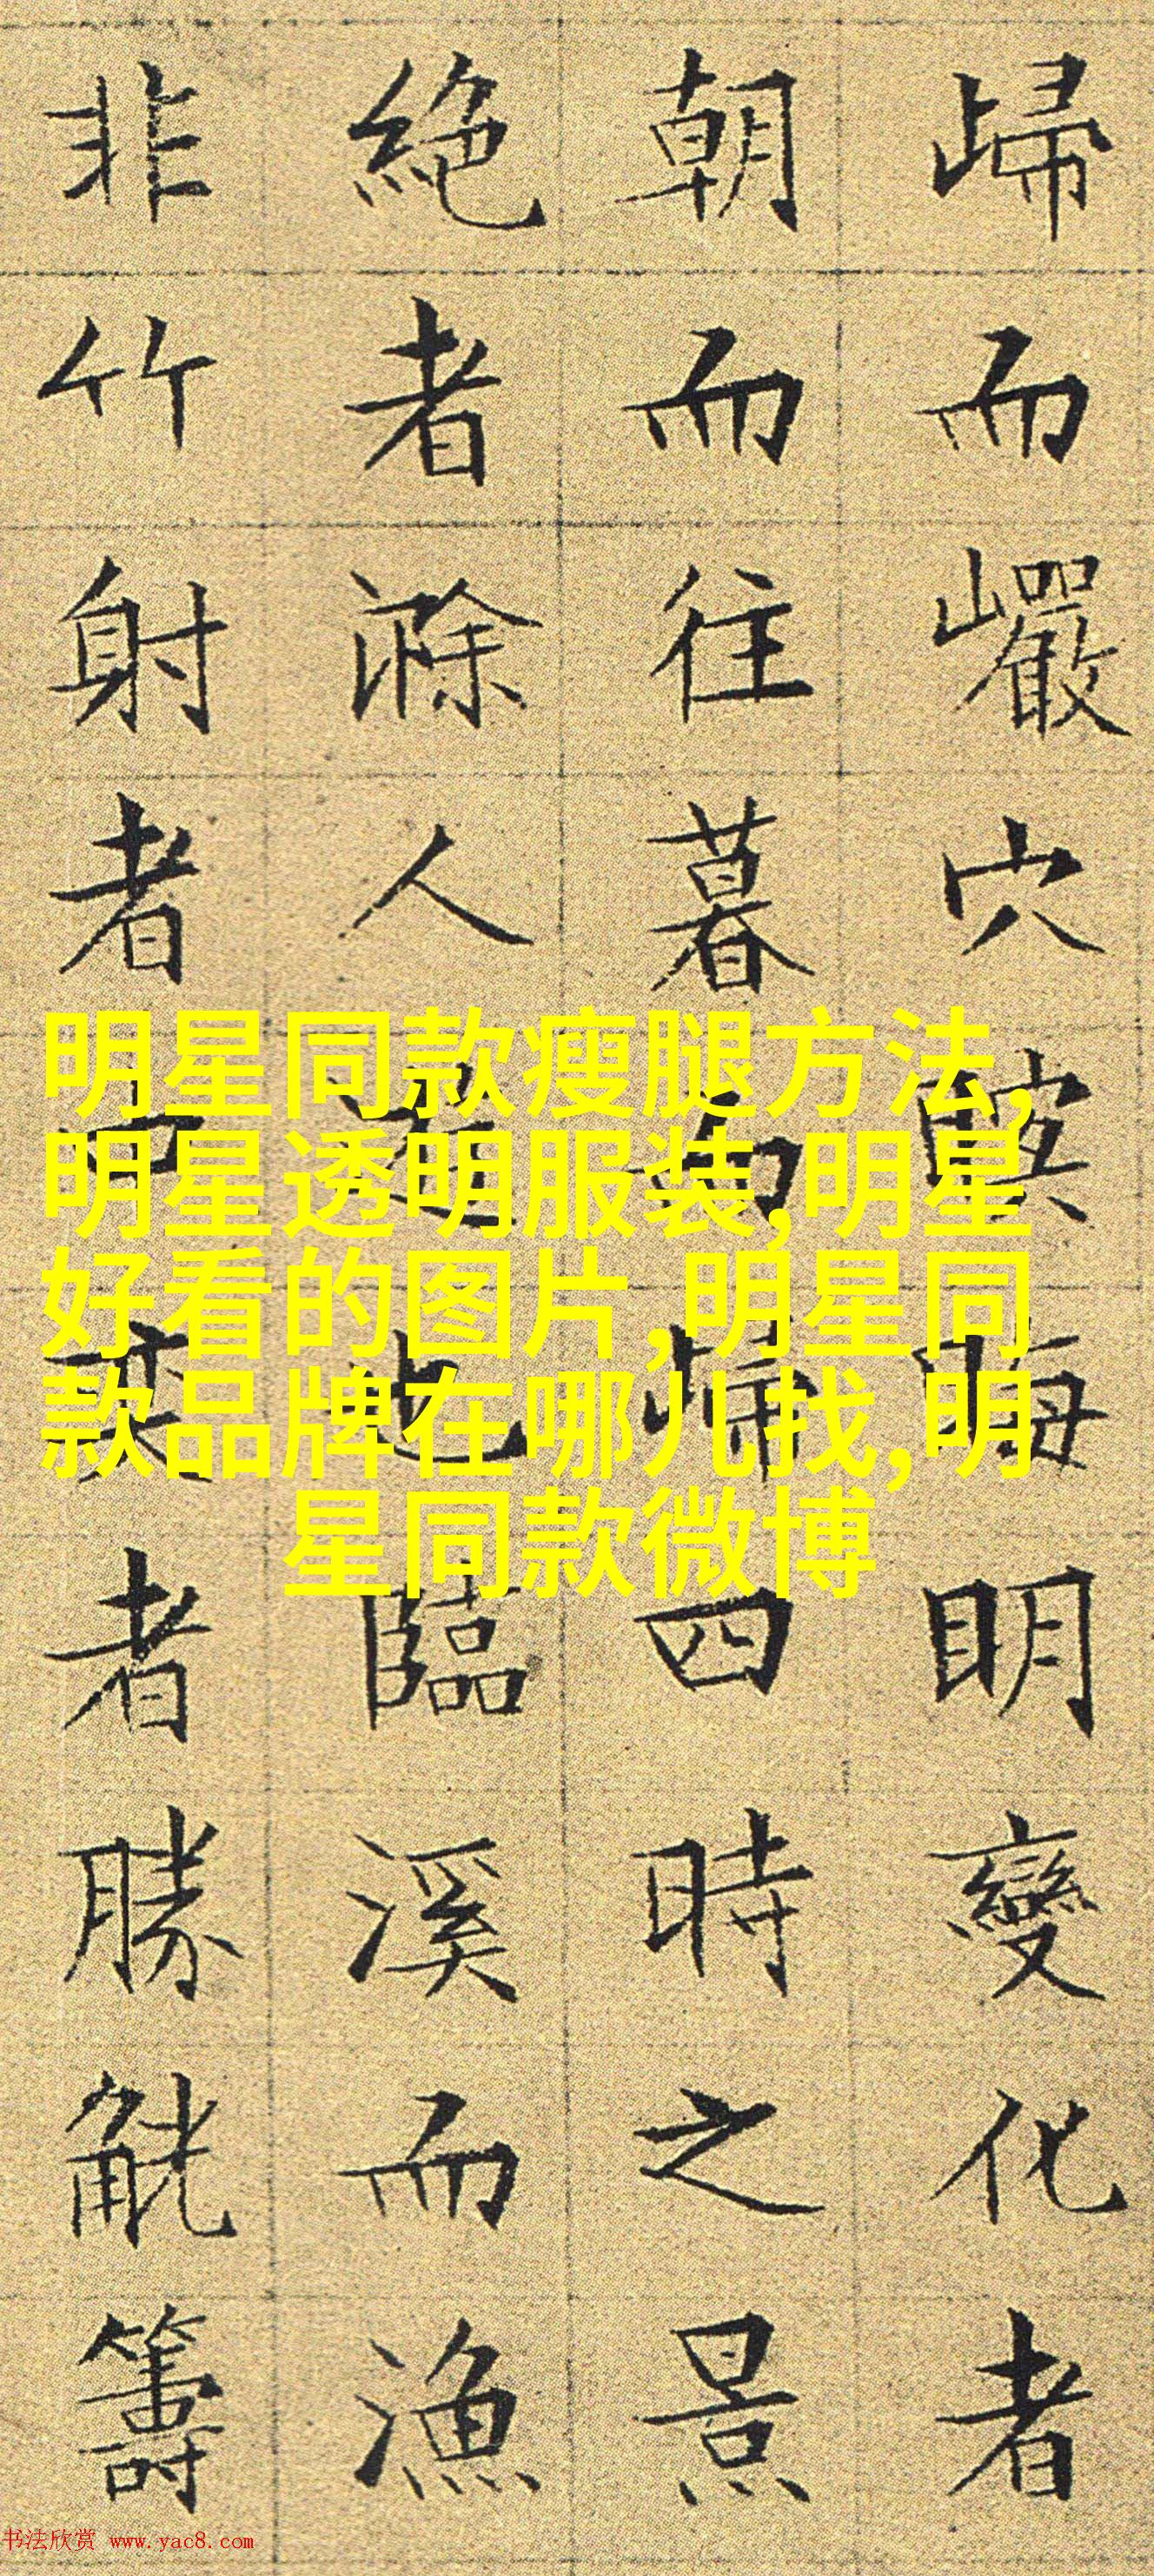 歸而巗穴暝晦明變化者
朝而往暮而歸四時之景
絶者滁人遊也臨溪而漁
非竹射者中弈者勝觥籌
明星同款瘦腿方法,
明星透明服装,明星
好看的图片,明星同
款品牌在哪儿找,明
星同款微博
书法欣赏 www.yac8.com